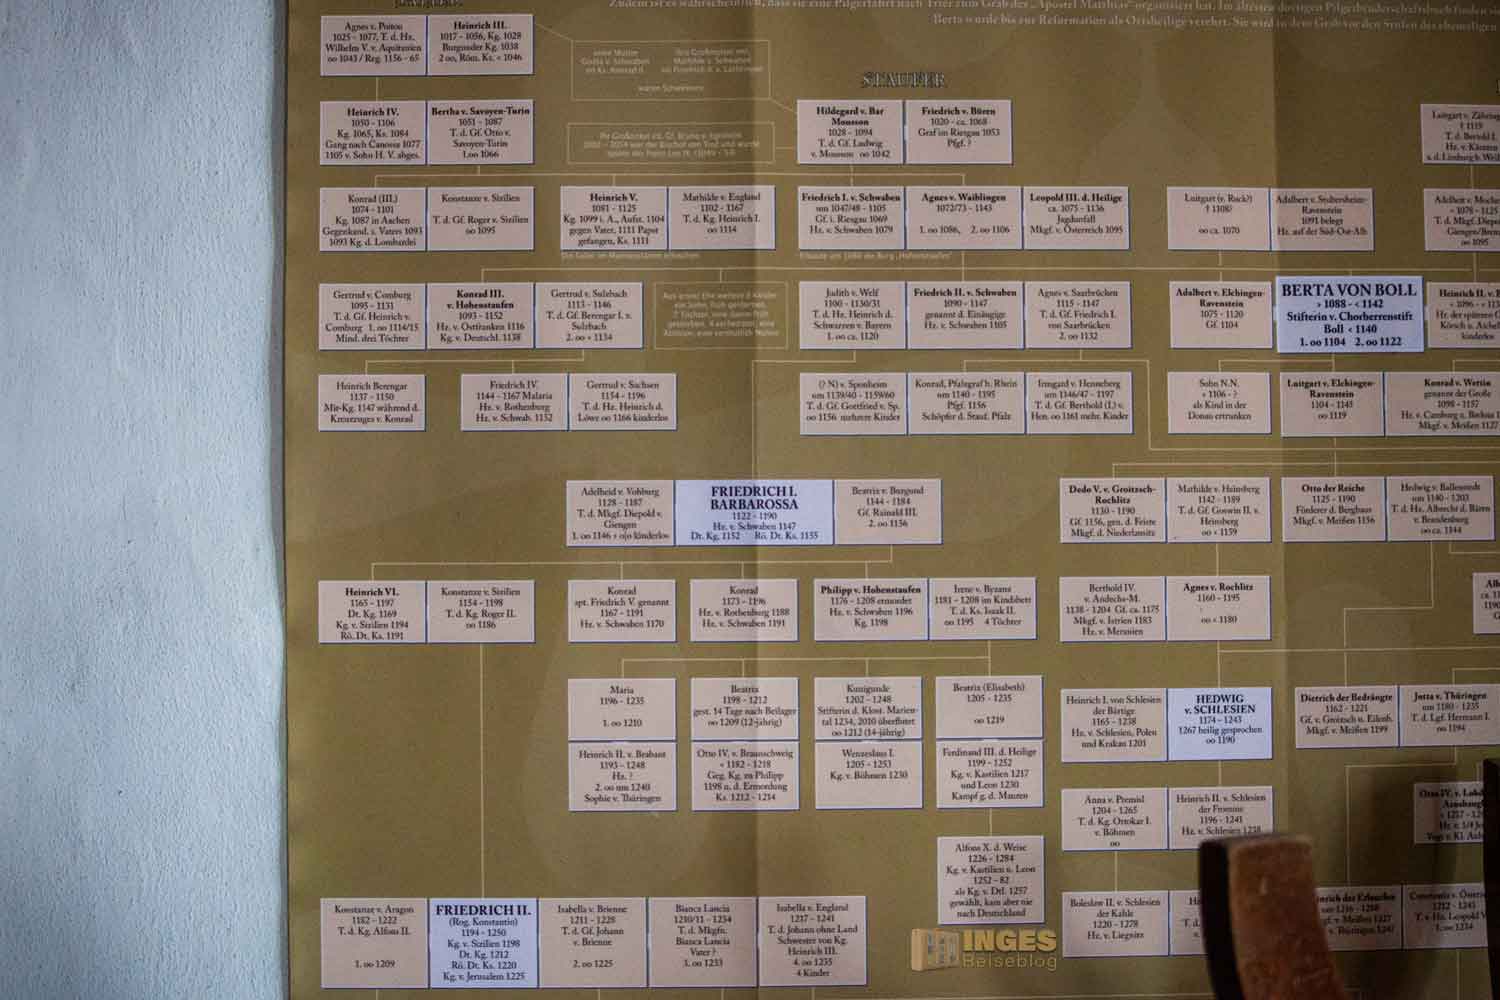 Zudem ist es wahrscheinlich, dass sie eine Pilgerfahrt nach Trier zum Grab des „Apostel Matthias“ organisiert hat. Im ältesten dortigen Pilgerbruderschaftsbuch finden
Berta wurde bis zur Reformation als Ortsheilige verehrt. Sie wird in dem Grab vor den Stufen des ehemaligen
Agnes v. Poitou
1025 - 1077, T. d. Hz.
Wilhelm V. v. Aquitanien
oo 1043 / Reg. 1156 - 65
Heinrich III.
1017 - 1056, Kg. 1028
Burgunder Kg. 1038
2 oo, Röm. Ks. < 1046
seine Mutter
Gisela v. Schwaben
oo Ks. Konrad II.
ihre Großmutter mtl.
Mathilde v. Schwaben
oo Friedrich II. v. Lothringen
waren Schwestern
STAUFER
Heinrich IV.
1050 - 1106
Kg. 1065, Ks. 1084
Gang nach Canossa 1077
1105 v. Sohn H. V. abges.
Bertha v. Savoyen-Turin
1051 - 1087
T. d. Gf. Otto v.
Savoyen-Turin
1.oo 1066
Hildegard v. Bar
Mousson
1028 - 1094
T. d. Gf. Ludwig
v. Mousson oo 1042
Friedrich v. Büren
1020 - ca. 1068
Graf im Riesgau 1053
Pfgf. ?
Konrad (III.)
1074 - 1101
Kg. 1087 in Aachen
Gegenkand. s. Vaters 1093
1093 Kg. d. Lombardei
Konstanze v. Sizilien
T. d. Gf. Roger v. Sizilien
oo 1095
Heinrich V.
1081 - 1125
Kg. 1099 i. A., Aufst. 1104
gegen Vater, 1111 Papst
gefangen, Ks. 1111
Mathilde v. England
1102 - 1167
T. d. Kg. Heinrich I.
oo 1114
Friedrich I. v. Schwaben
um 1047/48 - 1105
Gf. i. Riesgau 1069
Hz. v. Schwaben 1079
Agnes v. Waiblingen
1072/73 - 1143
1. oo 1086, 2. oo 1106
Leopold III. d. Heilige
ca. 1075 - 1136
Jagdunfall
Mkgf. v. Österreich 1095
Luitgart (v. Ruck?)
† 1108?
oo ca. 1070
Adalbert v. Stubersheim-
Ravenstein
1091 belegt
Hz. auf der Süd-Ost-Alb
Die Salier im Mannesstamm erloschen
Erbaute um 1080 die Burg „Hohenstaufen“
Gertrud v. Comburg
1095 - 1131
T. d. Gf. Heinrich v.
Comburg 1. oo 1114/15
Mind. drei Töchter
Konrad III.
v. Hohenstaufen
1093 - 1152
Hz. v. Ostfranken 1116
Kg. v. Deutschl. 1138
Gertrud v. Sulzbach
1113 - 1146
T. d. Gf. Berengar I. v.
Sulzbach
2. oo < 1134
Judith v. Welf
1100 - 1130/31
T. d. Hz. Heinrich d.
Schwarzen v. Bayern
1. oo ca. 1120
Friedrich II. v. Schwaben
1090 - 1147
genannt d. Einäugige
Hz. v. Schwaben 1105
Agnes v. Saarbrücken
1115 - 1147
T. d. Gf. Friedrich I.
von Saarbrücken
2. oo 1132
Adalbert v. Elchingen-
Ravenstein
1075 - 1120
Gf. 1104
BERTA VON BOLL
> 1088 - < 1142
Stifterin v. Chorherrenstift
Boll < 1140
1. oo 1104 2. oo 1122
Heinrich Berengar
1137 - 1150
Mit-Kg. 1147 während d.
Kreuzzuges v. Konrad
Friedrich IV.
1144 - 1167 Malaria
Hz. v. Rothenburg
Hz. v. Schwab. 1152
Gertrud v. Sachsen
1154 - 1196
T. d. Hz. Heinrich d.
Löwe oo 1166 kinderlos
(? N) v. Sponheim
um 1139/40 - 1159/60
T. d. Gf. Gottfried v. Sp.
oo 1156 mehrere Kinder
Konrad, Pfalzgraf b. Rhein
um 1140 - 1195
Pfgf. 1156
Schöpfer d. Stauf. Pfalz
Irmgard v. Henneberg
um 1146/47 - 1197
T. d. Gf. Berthold (I.) v.
Hen. oo 1161 mehr. Kinder
Sohn N.N.
< 1106 - ?
als Kind in der
Donau ertrunken
Luitgart v. Elchingen-
Ravenstein
1104 - 1145
oo 1119
Konrad v. Wettin
genannt der Große
1098 - 1157
Mkgf. v. Meißen 1127
Adelheid v. Vohburg
1128 - 1187
T. d. Mkgf. Diepold v.
Giengen
1. oo 1146 + o|o kinderlos
FRIEDRICH I.
BARBAROSSA
1122 - 1190
Hz. v. Schwaben 1147
Dt. Kg. 1152 Rö. Dt. Ks. 1155
Beatrix v. Burgund
1144 - 1184
Gf. Rainald III.
2. oo 1156
Dedo V. v. Groitzsch-
Rochlitz
1130 - 1190
Gf 1156, gen. d. Feiste
Mkgf. d. Niederlausitz
Mathilde v. Heinsberg
1142 - 1189
T. d. Gf. Goswin II. v.
Heinsberg
oo < 1159
Otto der Reiche
1125 - 1190
Förderer d. Bergbaus
Mkgf. v. Meißen 1156
Hedwig v. Ballenstedt
um 1140 - 1203
T. d. Hz. Albrecht d. Bären
v. Brandenburg
oo ca. 1144
Heinrich VI.
1165 - 1197
Dt. Kg. 1169
Kg. v. Sizilien 1194
Rö. Dt. Ks. 1191
Konstanze v. Sizilien
1154 - 1198
T. d. Kg. Roger II.
oo 1186
Konrad
spt. Friedrich V. genannt
1167 - 1191
Hz. v. Schwaben 1170
Konrad
1173 - 1196
Hz. v. Rothenburg 1188
Hz. v. Schwaben 1191
Philipp v. Hohenstaufen
1176 - 1208 ermordet
Hz. v. Schwaben 1196
Kg. 1198
Irene v. Byzanz
1181 - 1208 im Kindsbett
T. d. Ks. Isaak II.
oo 1195 4 Töchter
Berthold IV.
v. Andechs-M.
1138 - 1204 Gf. ca. 1175
Mkgf. v. Istrien 1183
Hz. v. Meranien
Agnes v. Rochlitz
1160 - 1195
oo < 1180
Maria
1196 - 1235
1. oo 1210
Beatrix
1198 - 1212
gest. 14 Tage nach Beilager
oo 1209 (12-jährig)
Kunigunde
1202 - 1248
Stifterin d. Klost. Marien-
tal 1234, 2010 überflutet
oo 1212 (14-jährig)
Beatrix (Elisabeth)
1205 - 1235
oo 1219
Heinrich I. von Schlesien
der Bärtige
1165 - 1238
Hz. v. Schlesien, Polen
und Krakau 1201
HEDWIG
v. SCHLESIEN
1174 - 1243
1267 heilig gesprochen
oo 1190
Dietrich der Bedrängte
1162 - 1221
Gf. v. Groitzsch u. Eilenb.
Mkgf. v. Meißen 1199
Jutta v. Thüringen
um 1180 - 1235
T. d. Lgf. Hermann I.
oo 1194
Heinrich II. v. Brabant
1195 - 1248
Hz. ?
2. oo um 1240
Sophie v. Thüringen
Otto IV. v. Braunschweig
< 1182 - 1218
Geg. Kg. zu Philipp
1198 u. d. Ermordung
Ks. 1212 - 1214
Wenzeslaus I.
1205 - 1253
Kg. v. Böhmen 1230
Ferdinand III. d. Heilige
1199 - 1252
Kg. v. Kastilien 1217
und Leon 1230
Kampf g. d. Mauren
Anna v. Premisl
1204 - 1265
T. d. Kg. Ottokar I.
v. Böhmen
oo
Heinrich II. v. Schlesien
der Fromme
1196 - 1241
Hz. v. Schlesien 1238
Alfons X. d. Weise
1226 - 1284
Kg. v. Kastilien u. Leon
1252 - 82
als Kg. v. Dtl. 1257
gewählt, kam aber nie
nach Deutschland
Konstanze v. Aragon
1182 - 1222
T. d. Kg. Alfons II.
1. oo 1209
FRIEDRICH II.
(Rog. Konstantin)
1194 - 1250
Kg. v. Sizilien 1198
Dt. Kg. 1212
Rö. Dt. Ks. 1220
Kg. v. Jerusalem 1225
Isabella v. Brienne
1211 - 1228
T. d. Gf. Johann
v. Brienne
2. oo 1225
Bianca Lancia
1210/11 - 1234
T. d. Mkgfn.
Bianca Lancia
Vater ?
3. oo 1233
Isabella v. England
1217 - 1241
T. d. Johann ohne Land
Schwester von Kg.
Heinrich III.
4. oo 1235
4 Kinder
Boleslaw II. v. Schlesien
der Kahle
1220 - 1278
Hz. v. Liegnitz
INGES
Reiseblog